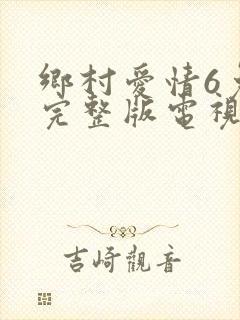 鄉村愛情6
完整版電視
吉崎觀音